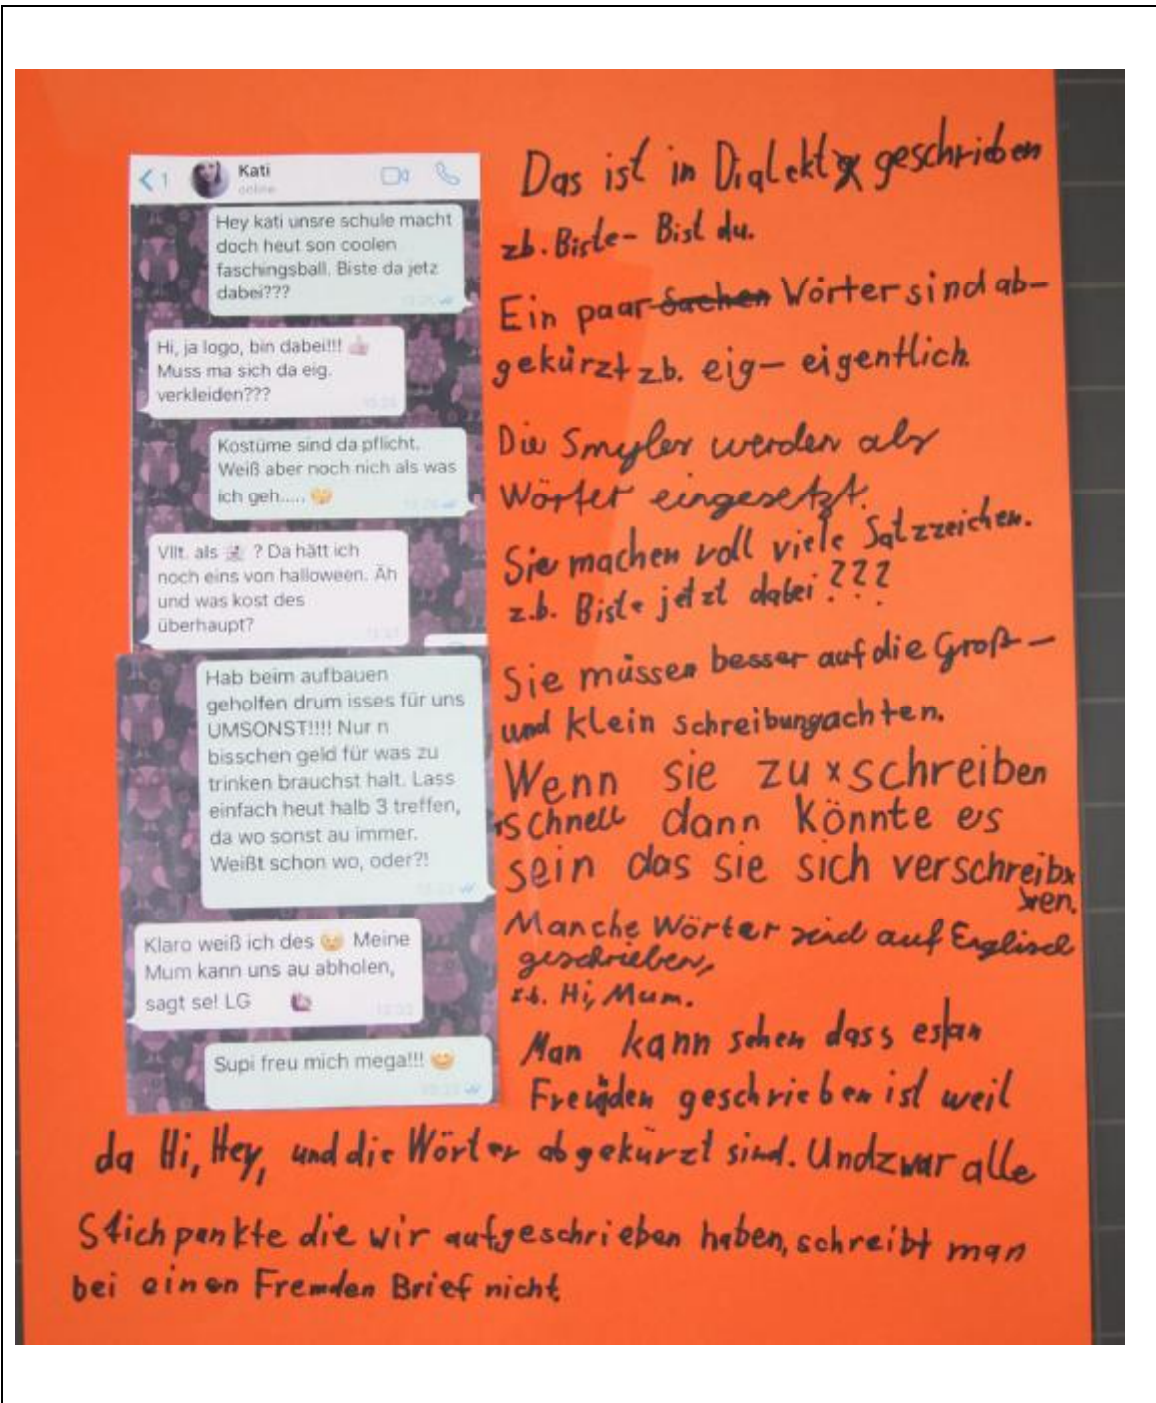 1
Kati
online
Hey kati unsre schule macht
doch heut son coolen
faschingsball. Biste da jetz
dabei???
Hi, ja logo, bin dabei!!!
Muss ma sich da eig.
verkleiden???
Kostüme sind da pflicht.
Weiß aber noch nich als was
ich geh.....
Vllt. als ? Da hätt ich
noch eins von halloween. Äh
und was kost des
überhaupt?
Hab beim aufbauen
geholfen drum isses für uns
UMSONST!!!! Nur n
bisschen geld für was zu
trinken brauchst halt. Lass
einfach heut halb 3 treffen,
da wo sonst au immer.
Weißt schon wo, oder?!
Klaro weiß ich des Meine
Mum kann uns au abholen,
sagt se! LG
Supi freu mich mega!!!
Das ist in Dialekt geschrieben
zb. Biste- Bist du.
Ein paar Sachen Wörter sind ab-
gekürzt z.b. eig- eigentlich.
Die Smyler werden als
Wörter eingesetzt.
Sie machen voll viele Satzzeichen.
z.b. Biste jetzt dabei???
Sie müssen besser auf die Groß-
und klein schreibungachten.
Wenn sie zu schreiben
schnell dann könnte es
sein das sie sich verschreib
en.
Manche Wörter sind auf Englisch
geschrieben,
z.b. Hi, Mum.
Man kann sehen dass es an
Freunden geschrieben ist weil
da Hi, Hey, und die Wörter abgekürzt sind. Undzwar alle
Stichpunkte die wir aufgeschrieben haben, schreibt man
bei einen Fremden Brief nicht.